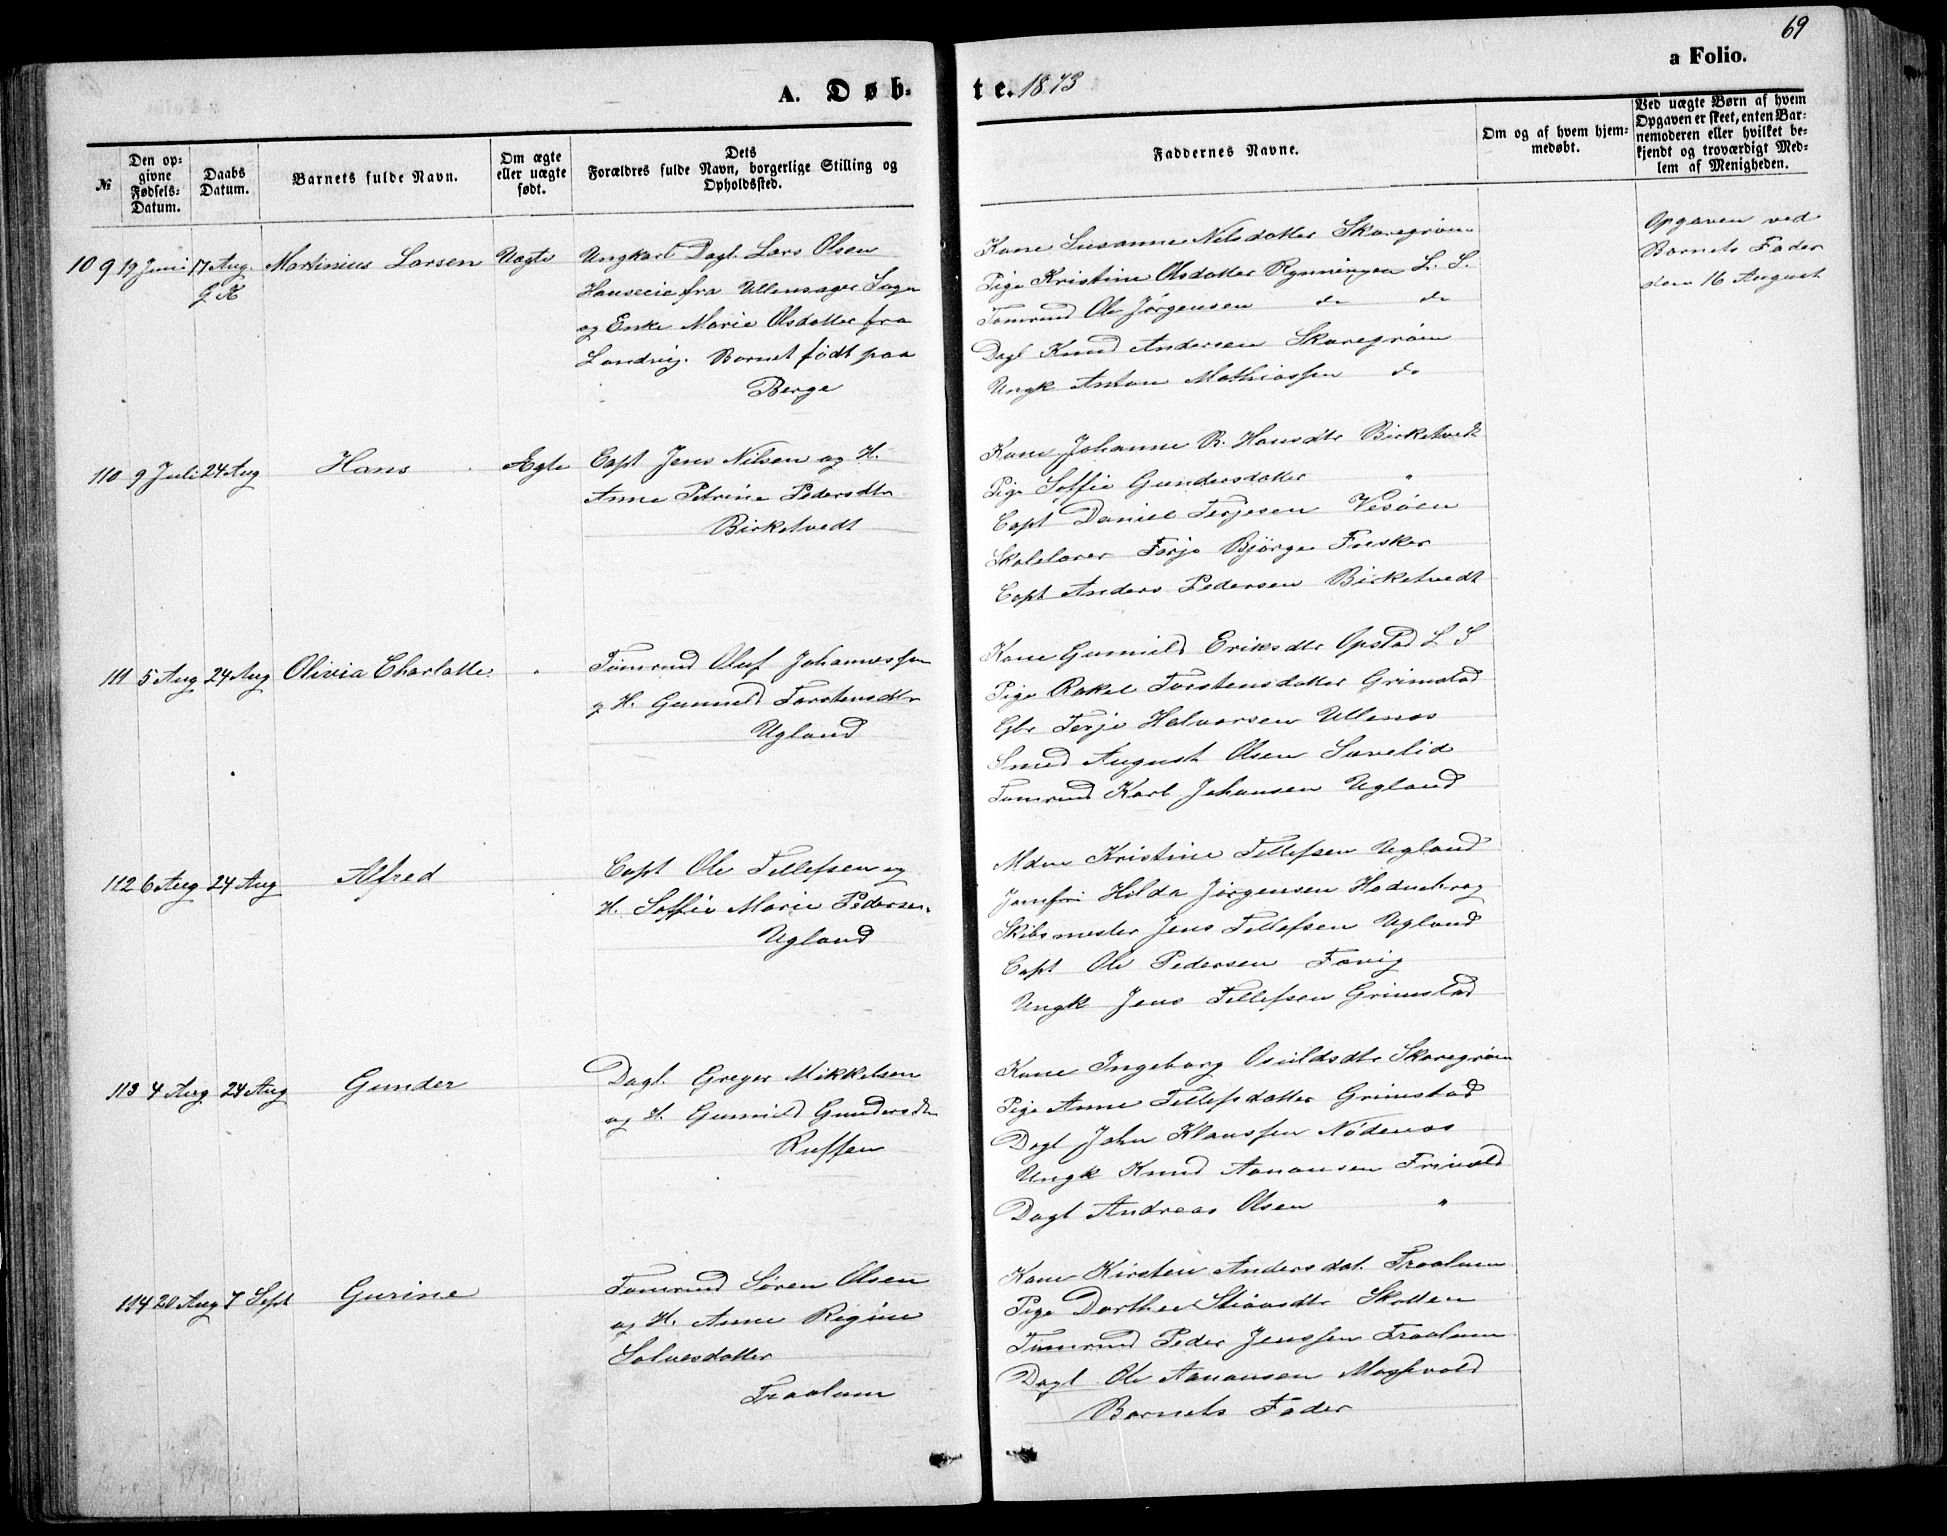 69
A. Døb-
te. 1873
a Folio.
№
Den op-
givne
Fødsels-
Datum.
Daabs
Datum.
Barnets fulde Navn.
Om ægte
eller uægte
født.
Dets
Forældres fulde Navn, borgerlige Stilling og
Opholdssted.
Faddernes Navne.
Om og af hvem hjem-
medøbt.
Ved uægte Børn af hvem
Opgaven er skeet, enten Bar-
nemoderen eller hvilket be-
kjendt og troværdigt Med-
lem af Menigheden.
109 19 Juni 17 Aug. Martinius Larsen Uægte
Ungkarl Dagl. Lars Olsen
fra Ullensager Sogn
og Enke Marie Olsdatter fra
Landvig. Barnet født paa
Berge
Kone Susanne Nilsdatter Skaregrøm
Pige Kristine Olsdatter Rynningen L. S.
Tømrmd Ole Jørgensen do do
Dagl Knud Andersen Skaregrøm
Ungk Anton Mathiassen do
Opgaven ved
Barnets Fader
den 16 August
110 9 Juli 24 Aug Hans Ægte
Capt Jens Nilsen og H.
Anne Petrine Pedersdtr
Birketvedt
Kone Johanne R. Hansdtr Birketvedt
Pige Soffie Gundersdatter "
Capt Daniel Terjesen Vesøen
Skolelærer Terje Bjørge Fresker
Capt Anders Pedersen Birketvedt
111 5 Aug 24 Aug Olivia Charlotte "
Tømrmd Oluf Johannessen
og H. Gunnild Torstensdtr
Ugland
Kone Gunnild Eriksdtr Opstad L S
Pige Rakel Torstensdatter Grimstad
Gbr Terje Halvorsen Ullenæs
Smed August Olsen Savelid
Tømrmd Karl Johansen Ugland
112 6 Aug 24 Aug Alfred
Capt Ole Tellefsen og
H. Soffie Marie Pedersen
Ugland
Mdm Kristine Tellefsen Ugland
Jomfru Hilda Jørgensen
Skibsmester Jens Tellefsen Ugland
Capt Ole Pedersen Fævig
Ungk Jens Tellefsen Grimstad
113 4 Aug 24 Aug Gunder
Dagl. Greger Mikkelsen
og H. Gunnild Gundersdtr
Roffen
Kone Ingeborg Osuldsdtr Skaregrøm
Pige Anne Tellefsdatter Grimstad
Dagl John Klaussen Nødenæs
Ungk Knud Aanonsen Frivold
Dagl Andreas Olsen "
114 20 Aug 7 Sept Gurine
Tømrmd Søren Olsen
og H. Anne Regine
Salvesdatter
Traalum
Kone Kirsten Andersdat. Traalum
Pige Dorthea Stiansdtr Skotten
Tømrmd Peder Jenssen Traalum
Dagl Ole Aanonsen Mosfvold
Barnets Fader